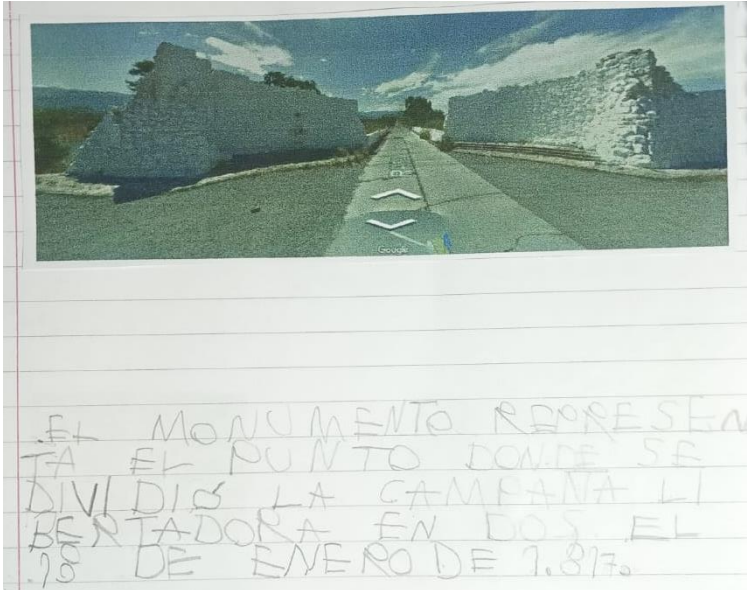 Google
.EL MONUMENTO REPRESEN
TA EL PUNTO DONDE SE
DIVIDIO LA CAMPAÑA LI
BERTADORA EN DOS EL
DE ENERO DE 1.817.